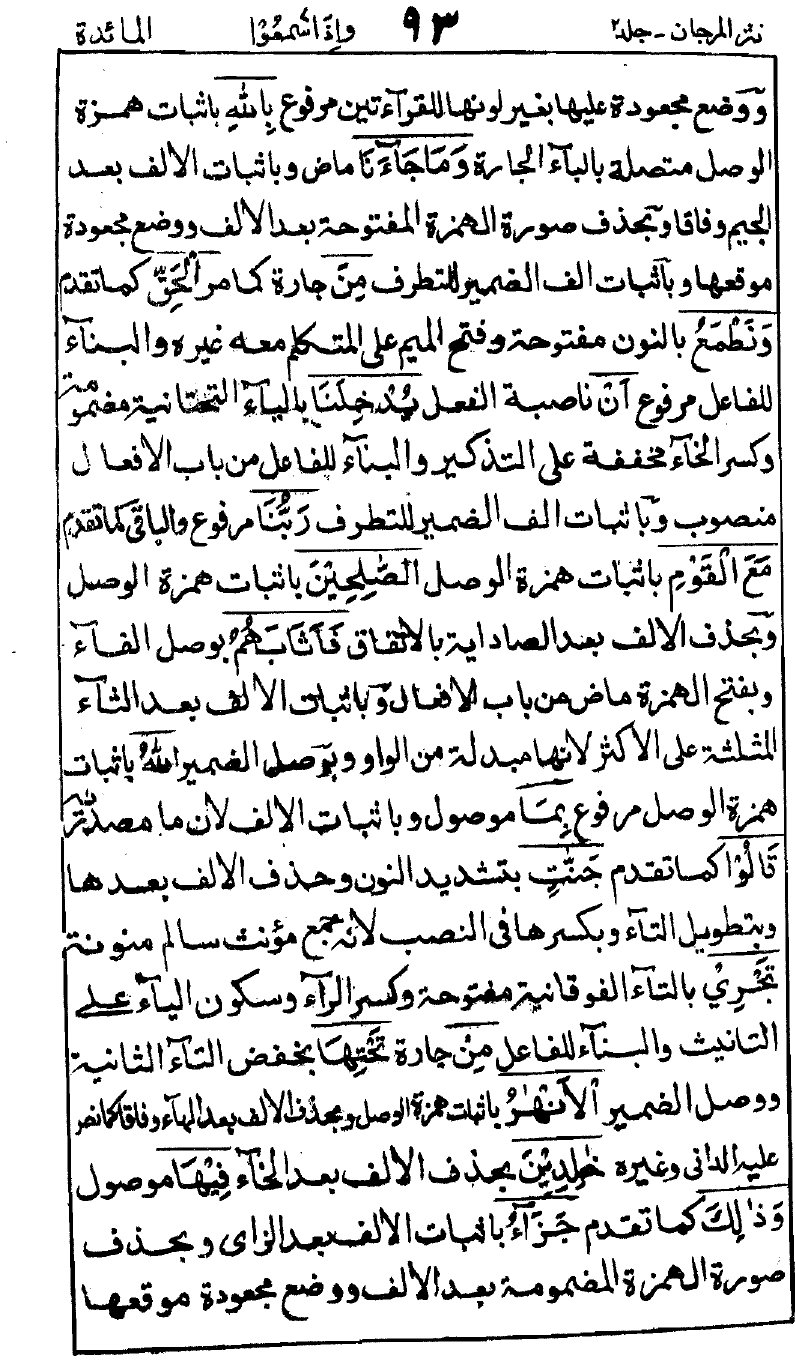 نثر المرجان - جلد٢ ٩٣ واذا سمعوا المائدة
ووضع مجعودة عليها بغير لونها للقرآءتين مرفوع بِاللهِ باثبات همزة
الوصل متصلة بالبآء الجارة وَمَا جَآءَنَا ماض وباثبات الالف بعد
الجيم وفاقا وبحذف صورة الهمزة المفتوحة بعد الالف ووضع مجعودة
موقعها وباثبات الف الضمير للتطرف مِنَ جارة كما مر الْحَقِّ كما تقدم
وَنَطْمَعُ بالنون مفتوحة وفتح الميم على المتكلم معه غيره والبنآء
للفاعل مرفوع اَنْ ناصبة الفعل يُدْخِلَنَا باليآء التحتانية مضمومة
وكسر الخآء مخففة على التذكير والبنآء للفاعل من باب الافعال
منصوب وباثبات الف الضمير للتطرف رَبُّنَا مرفوع والباقى كما تقدم
مَعَ الْقَوْمِ باثبات همزة الوصل الصّٰلِحِيْنَ باثبات همزة الوصل
وبحذف الالف بعد الصاد اية بالاتفاق فَاَثَابَهُمُ بوصل الفآء
وبفتح الهمزة ماض من باب الافعال وباثبات الالف بعد الثآء
المثلثة على الاكثر لانها مبدلة من الواو وبوصل الضمير اللهُ باثبات
همزة الوصل مرفوع بِمَا موصول وباثبات الالف لان ما مصدرية
قَالُوْا كما تقدم جَنّٰتٍ بتشديد النون وحذف الالف بعدها
وبتطويل التآء وبكسرها فى النصب لانه جمع مؤنث سالم منونة
تَجْرِيْ بالتآء الفوقانية مفتوحة وكسر الرآء وسكون اليآء على
التانيث والبنآء للفاعل مِنْ جارة تَحْتِهَا بخفض التآء الثانية
ووصل الضمير الْاَنْهٰرُ باثبات همزة الوصل وبحذف الالف بعد الهآء وفاقا كما نص
عليه الدانى وغيره خٰلِدِيْنَ بحذف الالف بعد الخآء فِيْهَا موصول
وَذٰلِكَ كما تقدم جَزَآءُ باثبات الالف بعد الزاى وبحذف
صورة الهمزة المضمومة بعد الالف ووضع مجعودة موقعها